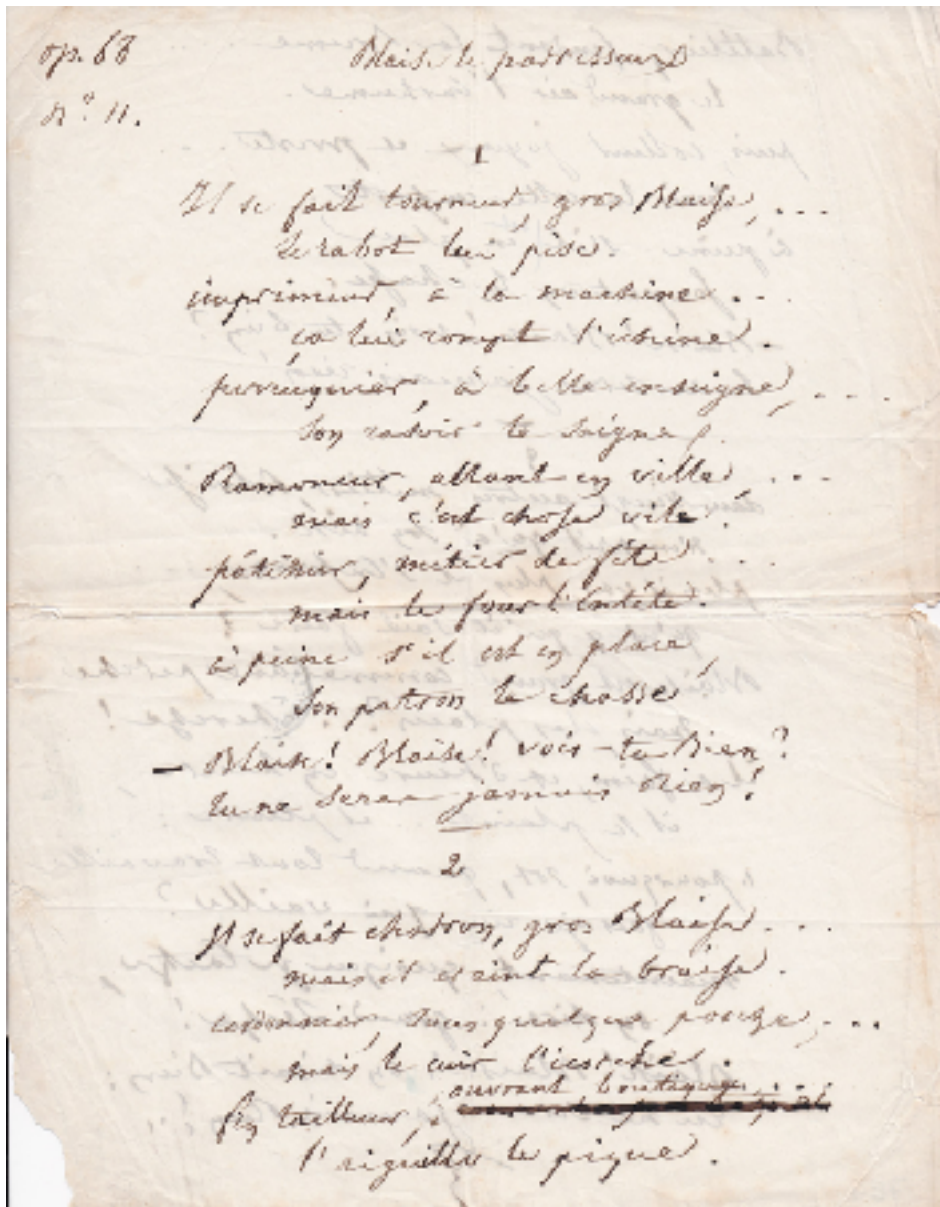 op. 68
Blaise le paresseux
n° 11.
1
Il se fait tourneur, gros Blaise, ...
le rabot lui pèse.
imprimeur, à la machine ...
ça lui rompt l'échine.
perruquier, à belle enseigne, ....
son rasoir le saigne.
Ramoneur, allant en ville, ...
mais c'est chose vile.
pâtissier, métier de fête ...
mais le four l'entête.
à peine s'il est en place,
son patron le chasse
– Blaise! Blaise! vois-tu bien?
tu ne seras jamais Rien!
2
Il se fait charron, gros Blaise ...
mais il craint la braise.
cordonnier, sous quelque porche, ...
mais le cuir l'écorche.
ouvrant boutique, ...
fin tailleur,
l'aiguille le pique.